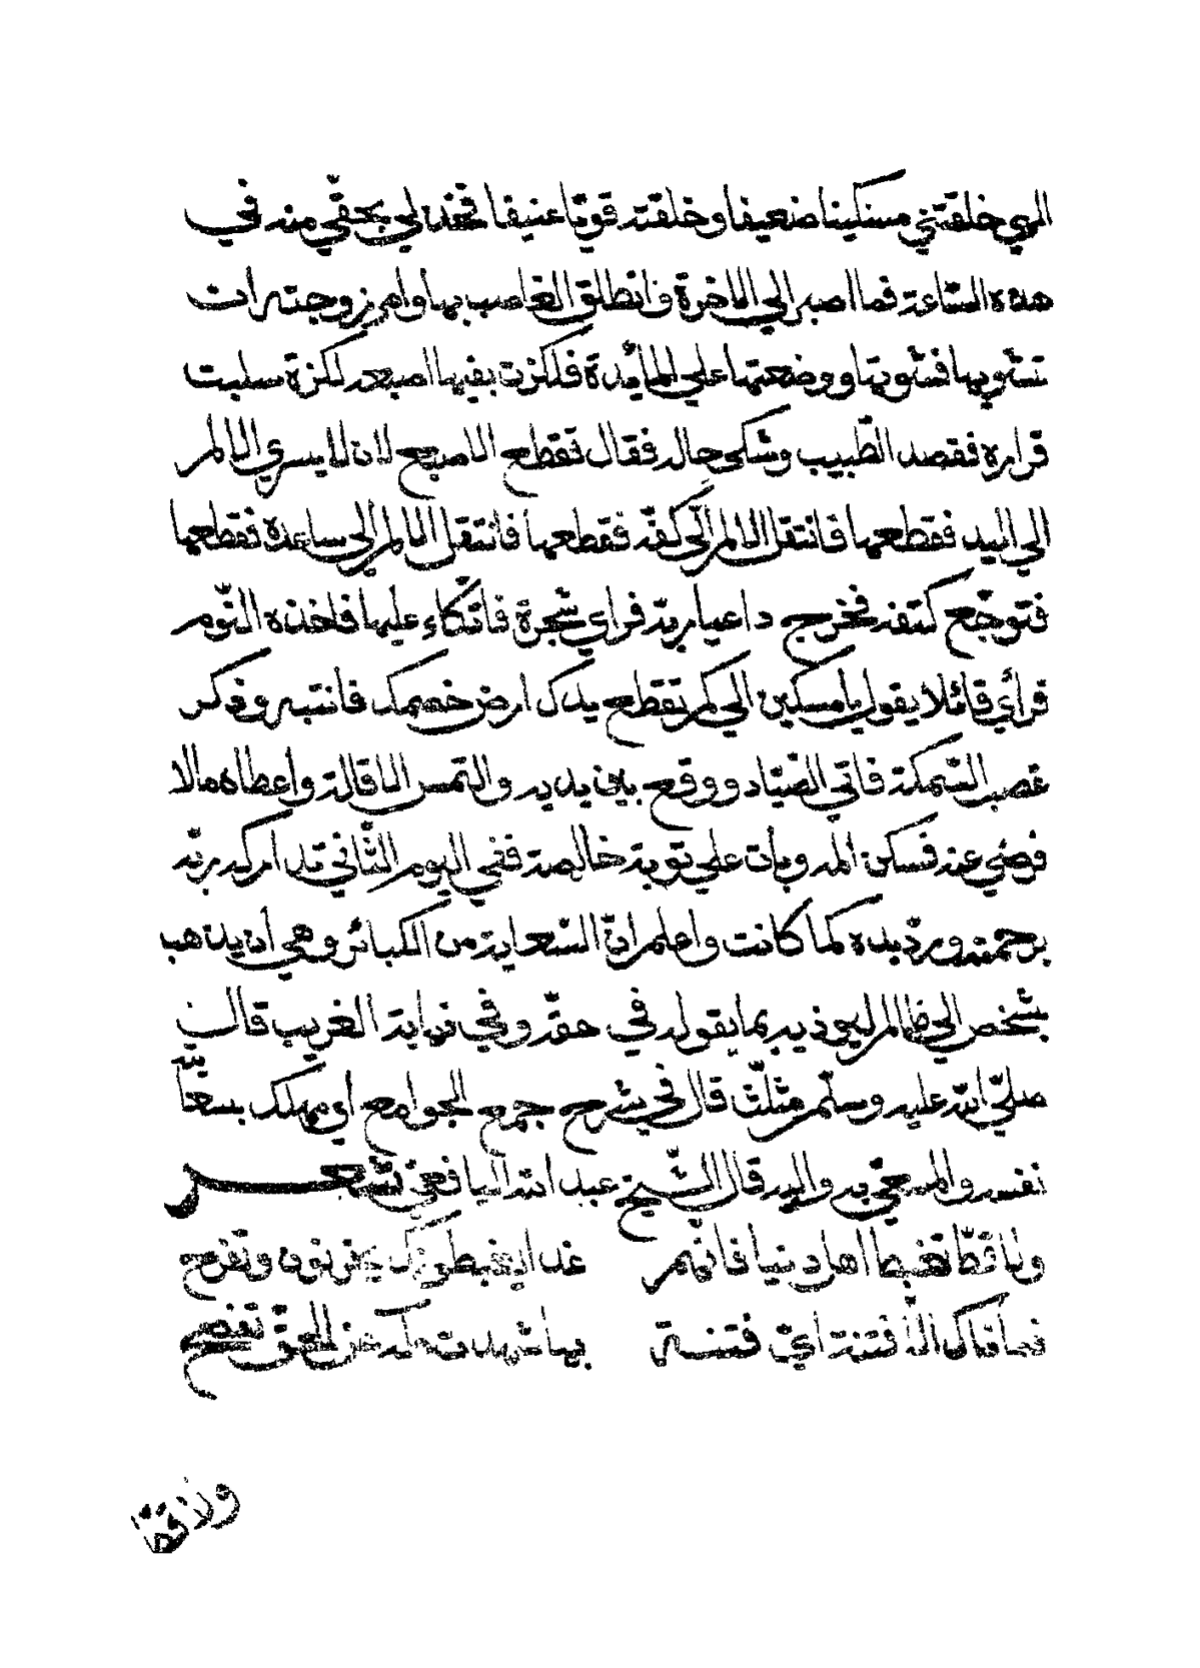 الهي خلقتني مسكينا ضعيفا وخلقته قويا عنيفا فخذ لي بحقي منه في
هذه السّاعة فما اصبر الي الاخرة فانطلق الغاصب بها وامر زوجته ان
تشويها فشوتها ووضعتها علي المائدة فلكزت بفيها اصبعه لكزة سلبت
قراره فقصد الطّبيب وشكي حاله فقال تقطع الاصبع لان لا يسري الالم
الي اليد فقطعها فانتقل الالم الي كفّه فقطعها فانتقل الالم الي ساعده فقطعها
فتوجّع كتفه فخرج داعيا ربّه فراي شجرة فاتكاء عليها فاخذه النّوم
فرأي قائلا يقول يا مسكين الي كم تقطع يدك ارض خصمك فانتبه وفكر
غصب السّمكة فاتي الصّيّاد ووقع بين يديه والتمس الاقالة واعطاه مالا
فرضي عنه فسكن المه وبات علي توبة خالصة ففي اليوم الثّاني تداركه ربّه
برحمته وردّ يده كما كانت واعلم انّ السّعاية من الكبائر وهي أن يذهب
بشخص الي ظالم ليوذيه بما يقوله في حقّه وفي نهاية الغريب قال النبي
صلّي الله عليه وسلّم مثلّث قال في شرح جمع الجوامع أي مهلك بسعايته
نفسه والمسعيّ به واليه قال الشّيخ عبد الله اليافعيّ شعر
ولا قطّ تغبط اهل دنيا فانّهم غدا يغبطونك يحزنون وتفرح
فما ذاك الّا فتنة ايّ فتنة بها شهدت عن الحق تفصح
ولا قطّ